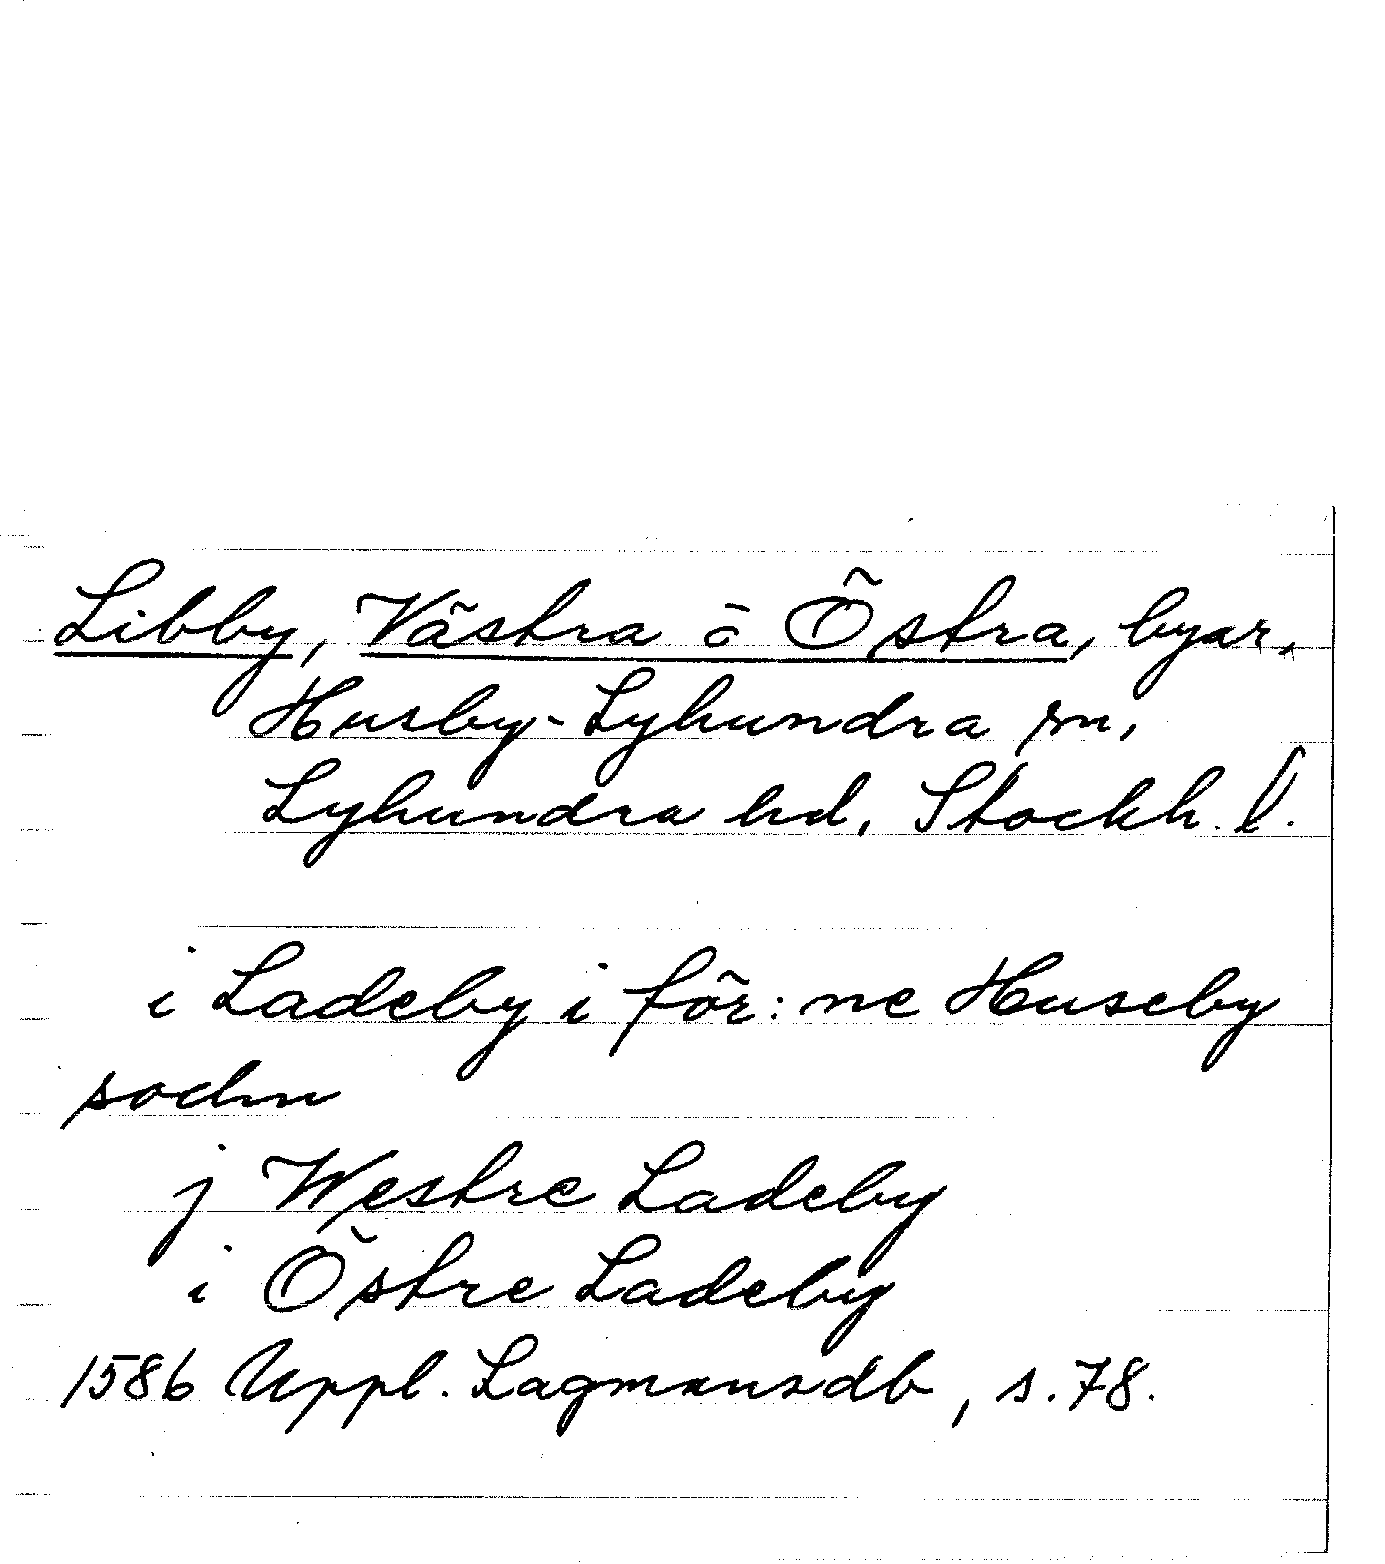 Libby, Västra o Östra, byar,
Husby-Lyhundra sn,
Lyhundra hd, Stockh. l.
i Ladeby i för: ne Huseby
sochn
j Westre Ladeby
i Östre Ladeby
1586 Uppl. Lagmansdb, s. 78.